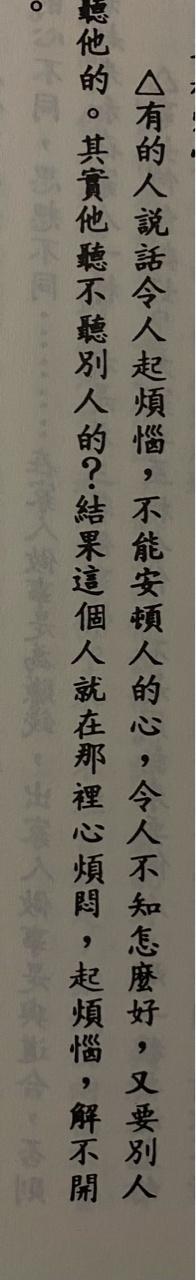 △有的人説話令人起煩惱，不能安頓人的心，令人不知怎麼好，又要別人
聽他的。其實他聽不聽別人的？結果這個人就在那裡心煩悶，起煩惱，解不開
。